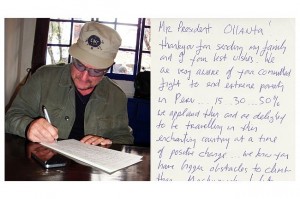 Mr. President OLLANTA!
thankyou for sending my family
and I your best wishes. We
are very aware of you committed
fight to end extreme poverty
in Peru .... 15.. 30 .. 50%
we applaud this and are delighted
to be travelling in this
enchanting country at a time
of positive change... we know you
have bigger obstacles to climb